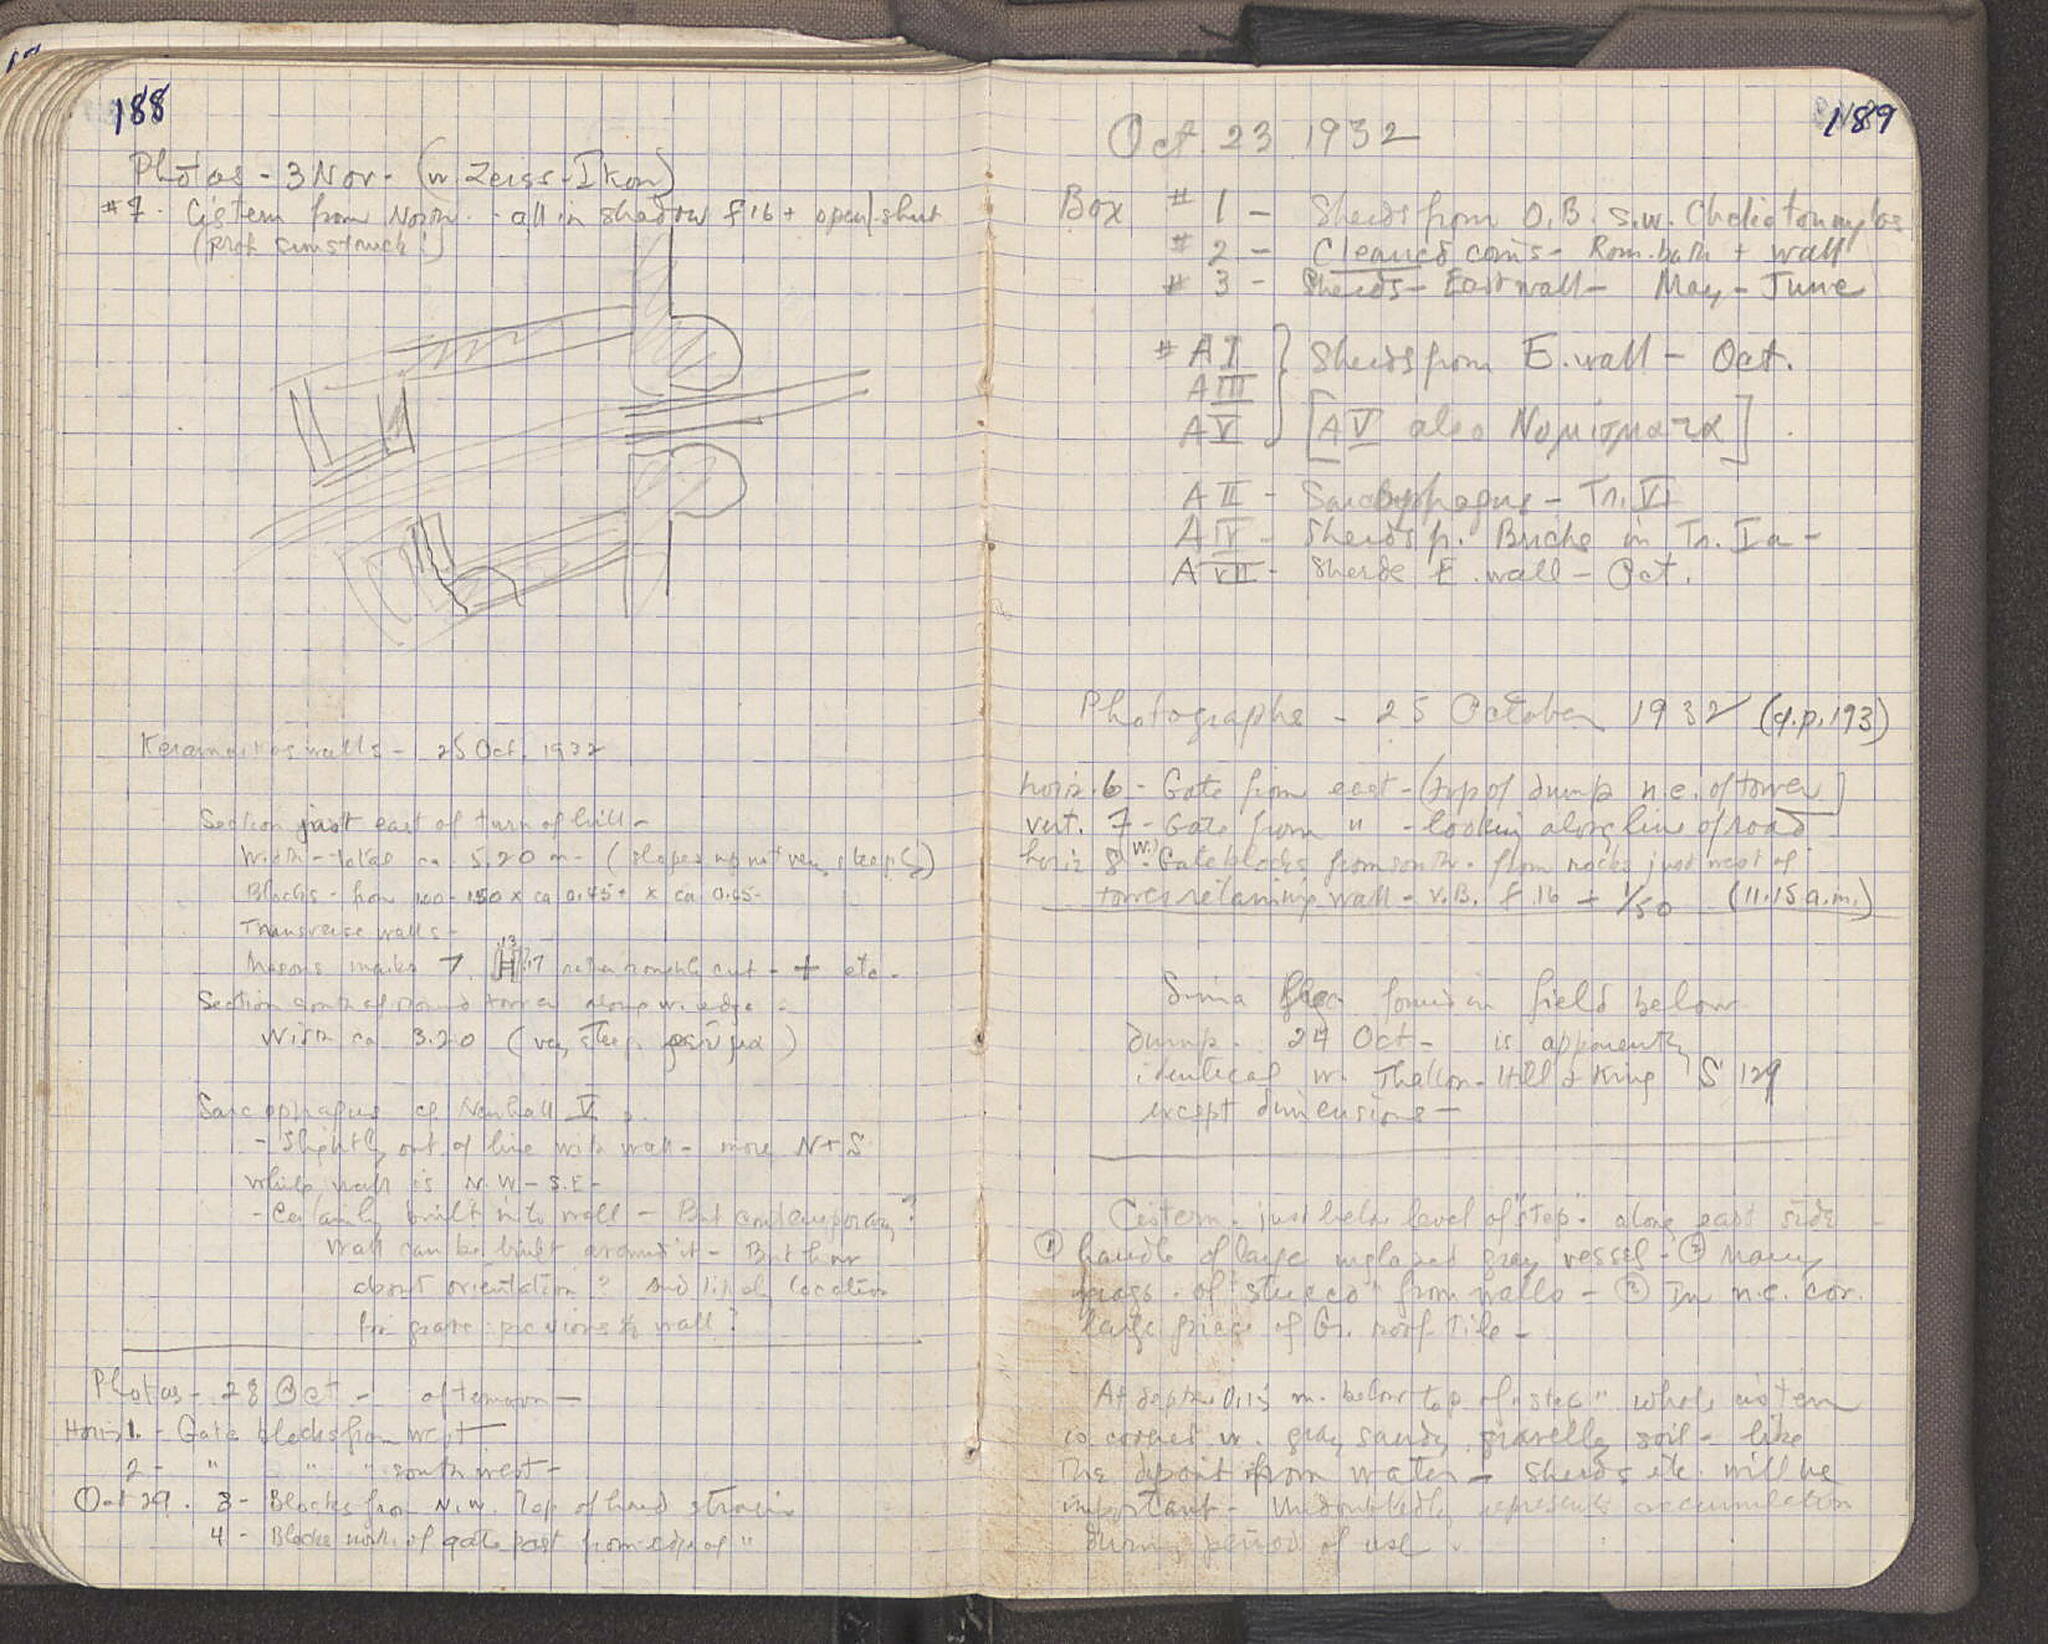 188
Photos - 3 Nov - (w. Zeiss-Ikon)
#7 - Cistern from North - all in shadow f 16 + open/shut
(prob sunstruck!)
Kerameikos walls - 25 Oct. 1932
Section just east of turn of hill -
Width - total ca 5.20 m - (slopes up not very steeply)
Blocks - from 100-150 x ca 0.45+ x ca 0.45-
Transverse walls -
Masons marks 7 .13 H .17 rather roughly cut - + etc -
Section south of round tower along w. edge -
Width ca 3.20 (very steep )
Sarcophagus of V
- Slightly out of line with wall - more N + S
while wall is N.W - S.E -
- Certainly built into wall - But contemporary?
Wall can be built around it - But how
about orientation? And location
for grave previous to wall?
Photos - 28 Oct - afternoon -
Horiz 1. - Gate blocks from West
2 - " " " south west -
Oct 29. 3 - Blocks from N.W. Top of
4 - Blocks north of gate post from edge of "
189
Oct. 23 1932
Box #1 - Sherds from O.B. S.W. Cheliotomylos
#2 - Cleaned coins - Rom. bath + wall
#3 - Sherds - East wall - May - June
#AI } Sherds from E. wall - Oct.
AIII
AV } [AV also Νομίσματα]
AII - Sarcophagus - Tr. VI
AIV - Sherds fr. Bricks in Tr. Ia -
AVII - Sherds E. wall - Oct.
Photographs - 25 October 1932 (q.p. 193)
horiz. 6 - Gate from east - (top of dump n.e. of tower)
vert. 7 - Gate from " - looking along line of road
horiz 8 - (W.) Gate blocks from south - from rocks just west of
tower retaining wall - V.B. f. 16 - 1/50 (11.15 a.m.)
Sima frag. found in field below
dump. 24 Oct - is apparently
identical w. Thallon-Hill & King S 129
except dimensions -
Cistern - just below level of "step" - along east side -
① handle of large unglazed gray vessel - ② Many
frags. of "stucco" from walls - ③ In n.e. cor.
large piece of Gr. roof tile -
At depth 0.15 m. below top of "step" whole cistern
is covered w. gray sandy gravelly soil - like
the deposit from water - sherds etc. will be
important - Undoubtedly represents accumulation
during period of use.